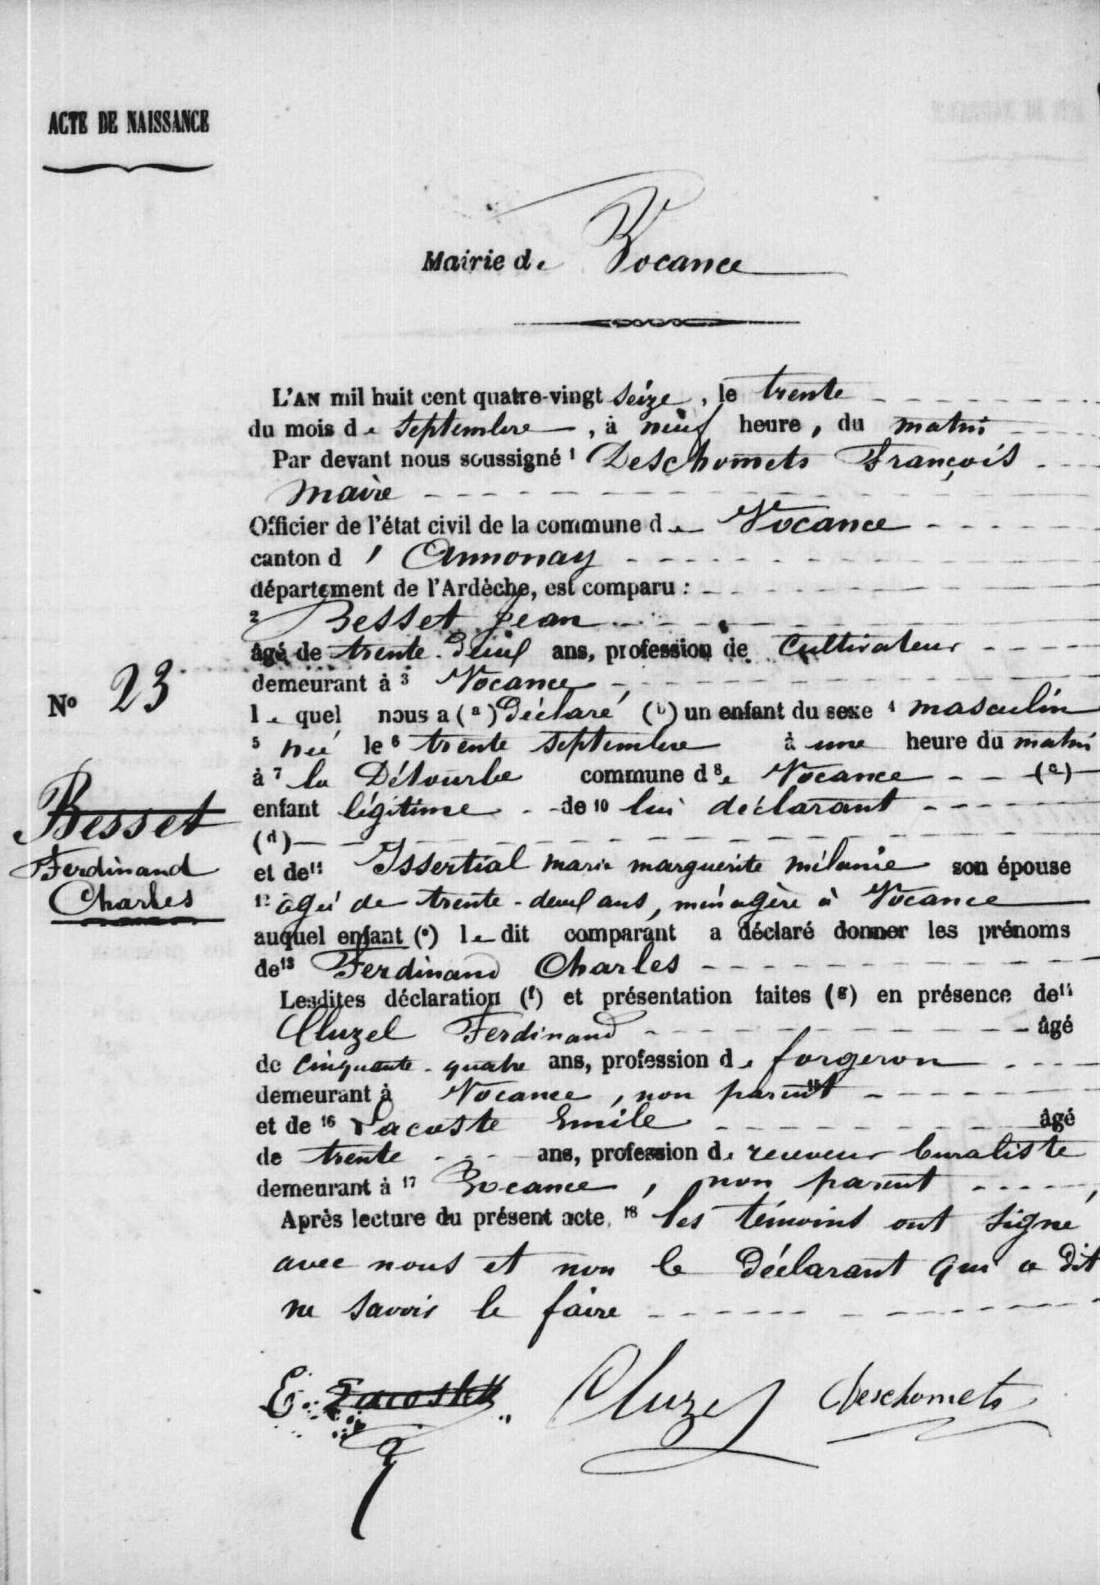 ACTE DE NAISSANCE
Mairie de Vocance
L'AN mil huit cent quatre-vingt seize, le trente
du mois de septembre, à neuf heure, du matin
Par devant nous soussigné 1 Deschomets François
maire
Officier de l'état civil de la commune de Vocance
canton d'Annonay
département de l'Ardèche, est comparu :
2 Besset Jean
âgé de trente-deux ans, profession de cultivateur
demeurant à 3 Vocance
No 23
lequel nous a (a) déclaré (b) un enfant du sexe 4 masculin
5 né le 6 trente septembre à une heure du matin
à 7 la Détourbe commune d 8 e Vocance (c)
Besset
Ferdinand
Charles
enfant légitime de 10 lui déclarant
(d)
et de 11 Issertial marie marguerite mélanie son épouse
12 âgée de trente-deux ans, ménagère à Vocance
auquel enfant (e) le dit comparant a déclaré donner les prénoms
de 13 Ferdinand Charles
Lesdites déclaration (f) et présentation faites (g) en présence de 14
Cluzel Ferdinand âgé
de cinquante-quatre ans, profession de forgeron
demeurant à Vocance, non parent 15
et de 16 Lacoste Emile âgé
de trente ans, profession de receveur buraliste
demeurant à 17 Vocance, non parent
Après lecture du présent acte, 18 les témoins ont signé
avec nous et non le déclarant qui a dit
ne savoir le faire
E. Lacoste Cluzel Deschomets